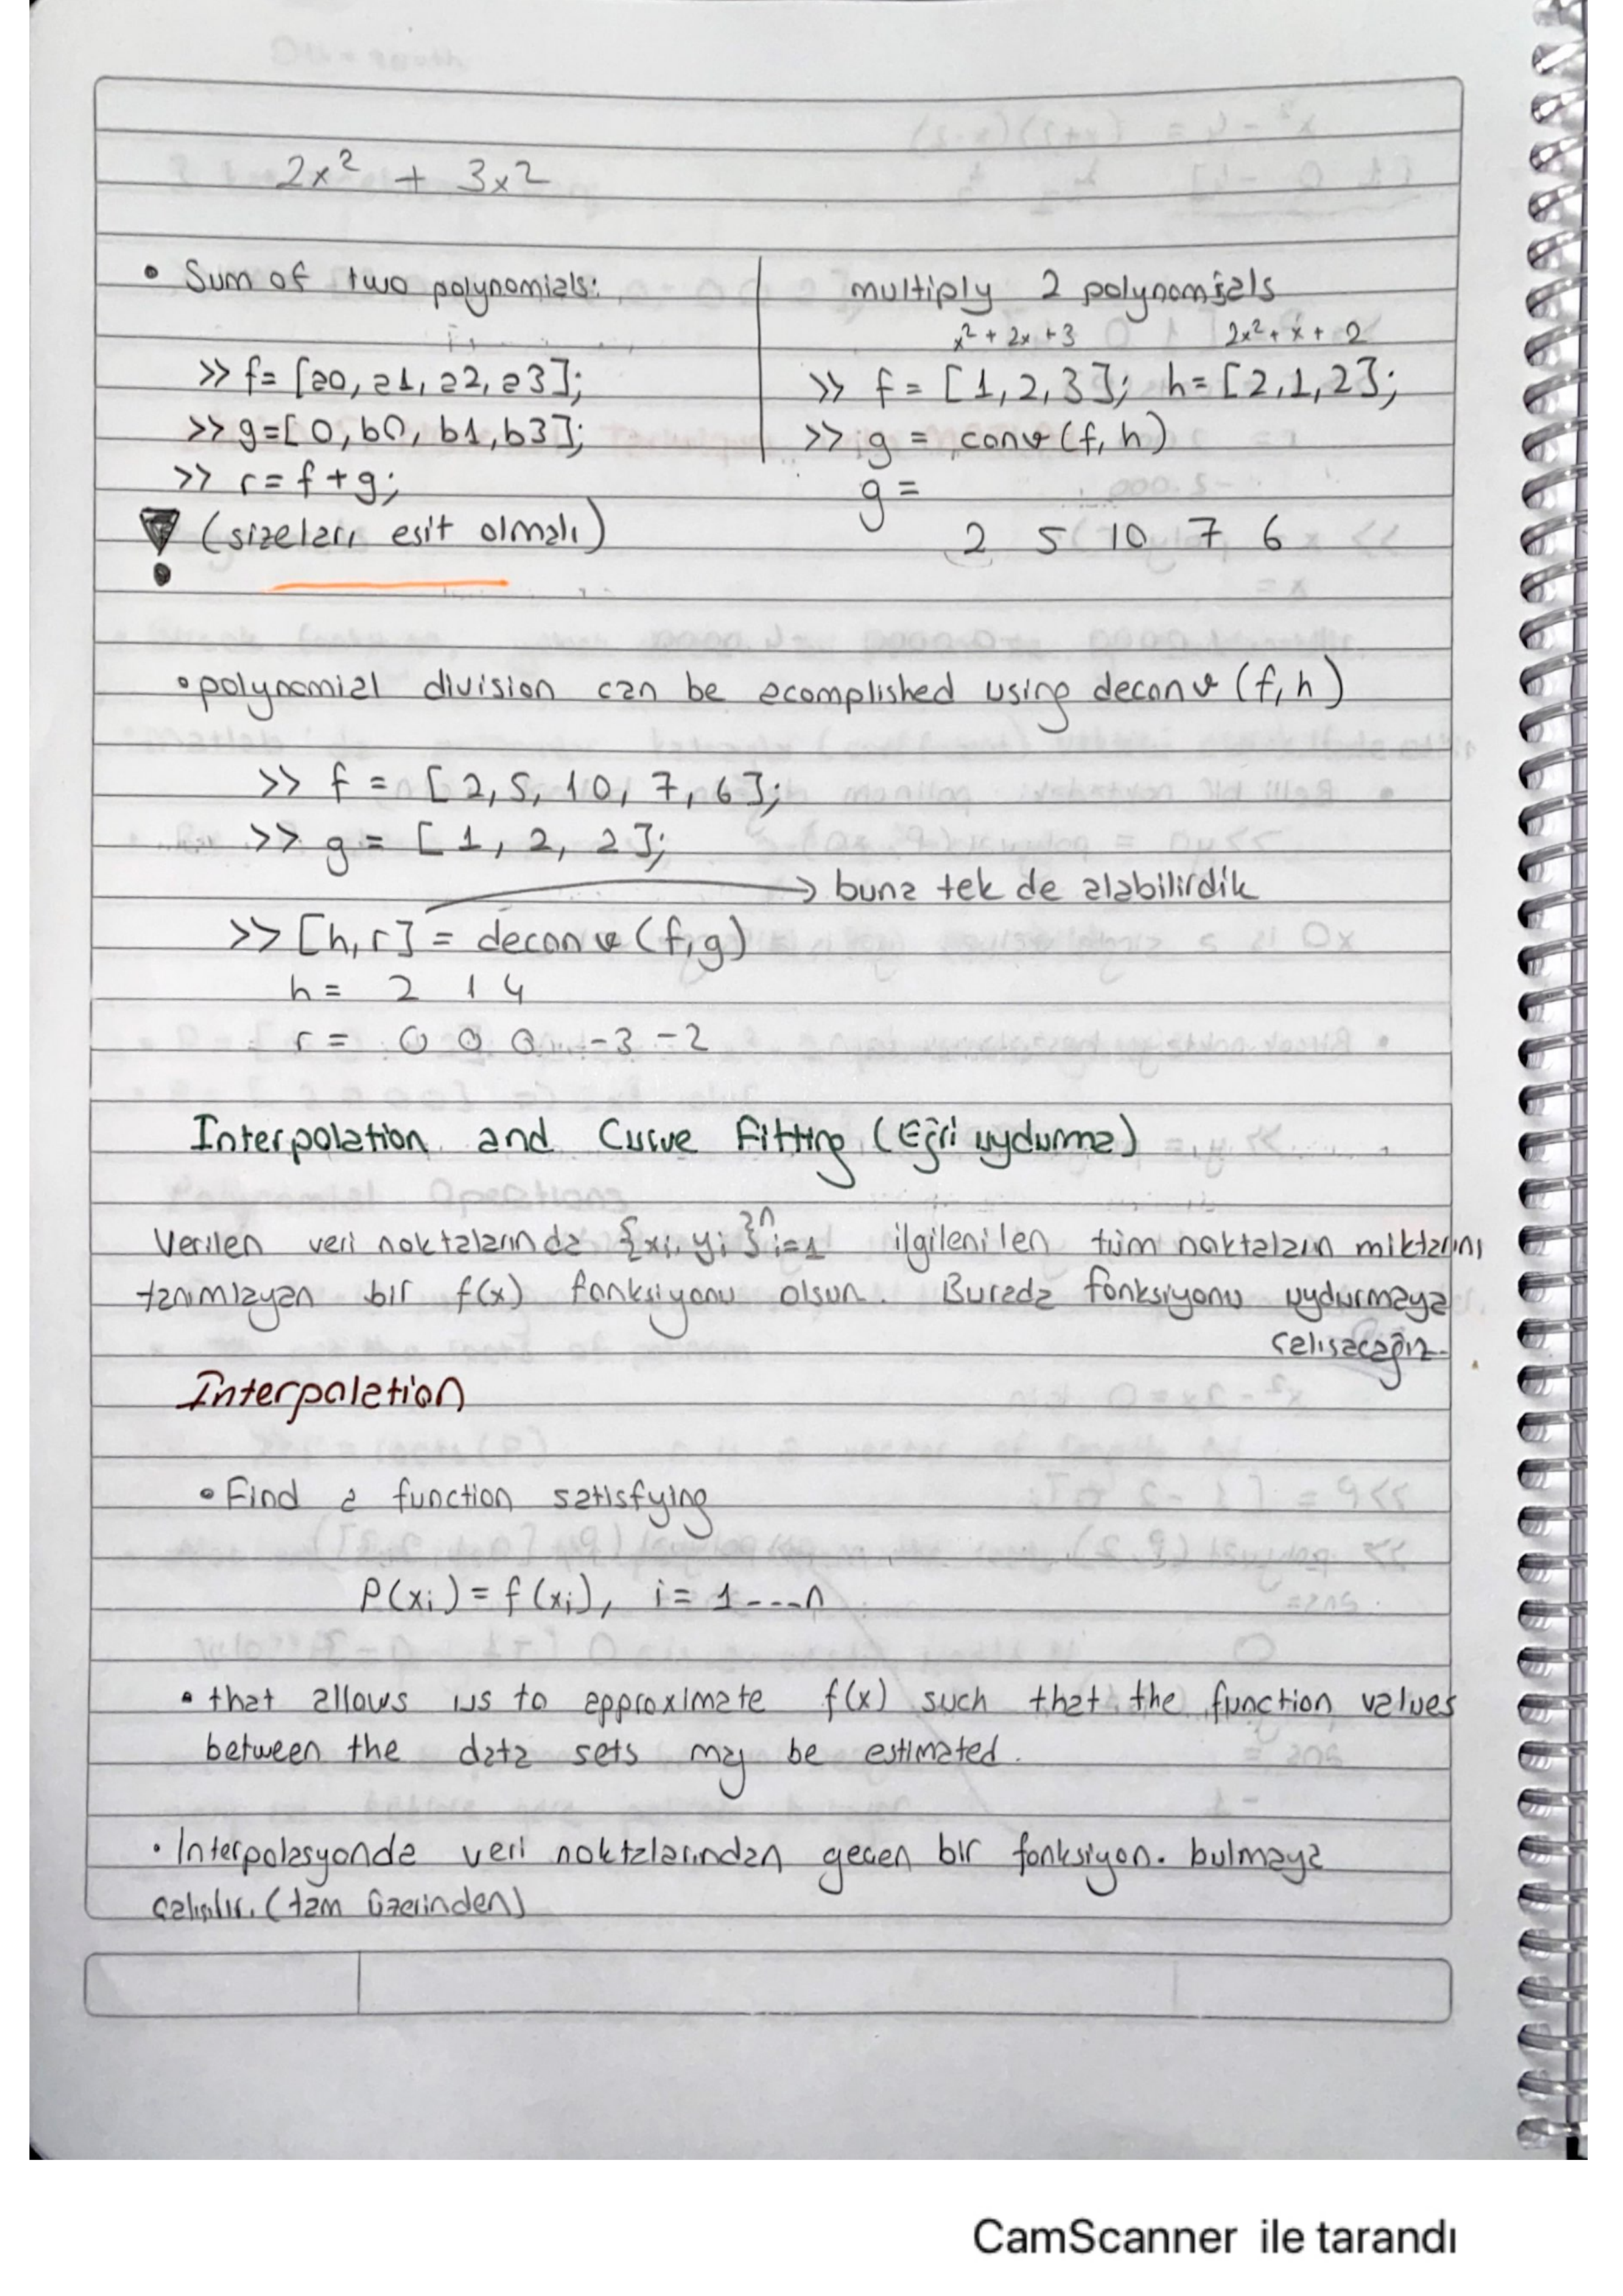 2x² + 3x2
• Sum of two polynomials:
>> f= [a0, a1, a2, a3];
>> g=[0, b0, b1, b3];
>> r= f+g;
(sizeları esit olmalı)
multiply 2 polynomials
x² + 2x + 3 2x² + x + 2
>> f = [1, 2, 3]; h= [2,1,2];
>> g = conv(f, h)
g =
2 5 10 7 6
• polynomial division can be acomplished using deconv (f, h)
>> f = [2, 5, 10, 7, 6];
>> g = [1, 2, 2];
→ buna tek de alabilirdik
>> [h, r] = deconv (f, g)
h = 2 1 4
r = 0 0 0 -3 -2
Interpolation and Curve Fitting (Eğri uydurma)
Verilen veri noktalarında {xi, yi}ⁿi=1 ilgilenilen tüm noktaların miktarını
tanımlayan bir f(x) fonksiyonu olsun. Burada fonksiyonu uydurmaya
calısacağız.
Interpolation
• Find a function satisfying
P(xi) = f(xi), i = 1----n
• that allows us to approximate f(x) such that the function values
between the data sets may be estimated.
• Interpolasyonda veri noktalarından gecen bir fonksiyon. bulmaya
calısılır. (tam üzerinden)
CamScanner ile tarandı